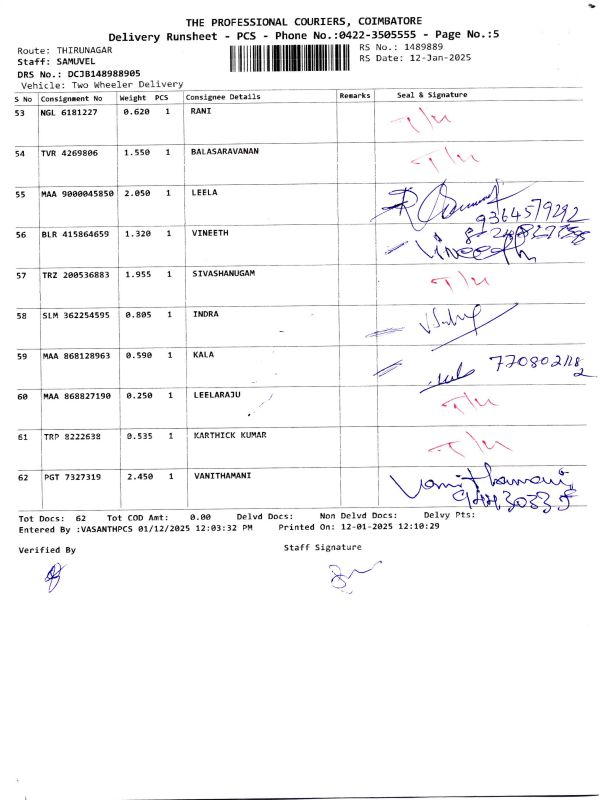 THE PROFESSIONAL COURIERS, COIMBATORE
Delivery Runsheet - PCS - Phone No.:0422-3505555 - Page No.:5
Route: THIRUNAGAR
RS No.: 1489889
Staff: SAMUVEL
RS Date: 12-Jan-2025
DRS No.: DCJB148988905
Vehicle: Two Wheeler Delivery
S No Consignment No Weight PCS Consignee Details Remarks Seal & Signature
53 NGL 6181227 0.620 1 RANI T/u
54 TVR 4269806 1.550 1 BALASARAVANAN T/u
55 MAA 9000045850 2.050 1 LEELA
9364579292
56 BLR 415864659 1.320 1 VINEETH Vineeth
57 TRZ 200536883 1.955 1 SIVASHANUGAM T/u
58 SLM 362254595 0.805 1 INDRA
59 MAA 868128963 0.590 1 KALA
60 MAA 868827190 0.250 1 LEELARAJU T/u
61 TRP 8222638 0.535 1 KARTHICK KUMAR T/u
62 PGT 7327319 2.450 1 VANITHAMANI Vanithamani
Tot Docs: 62 Tot COD Amt: 0.00 Delvd Docs: Non Delvd Docs: Delvy Pts:
Entered By :VASANTHPCS 01/12/2025 12:03:32 PM Printed On: 12-01-2025 12:10:29
Verified By
Staff Signature